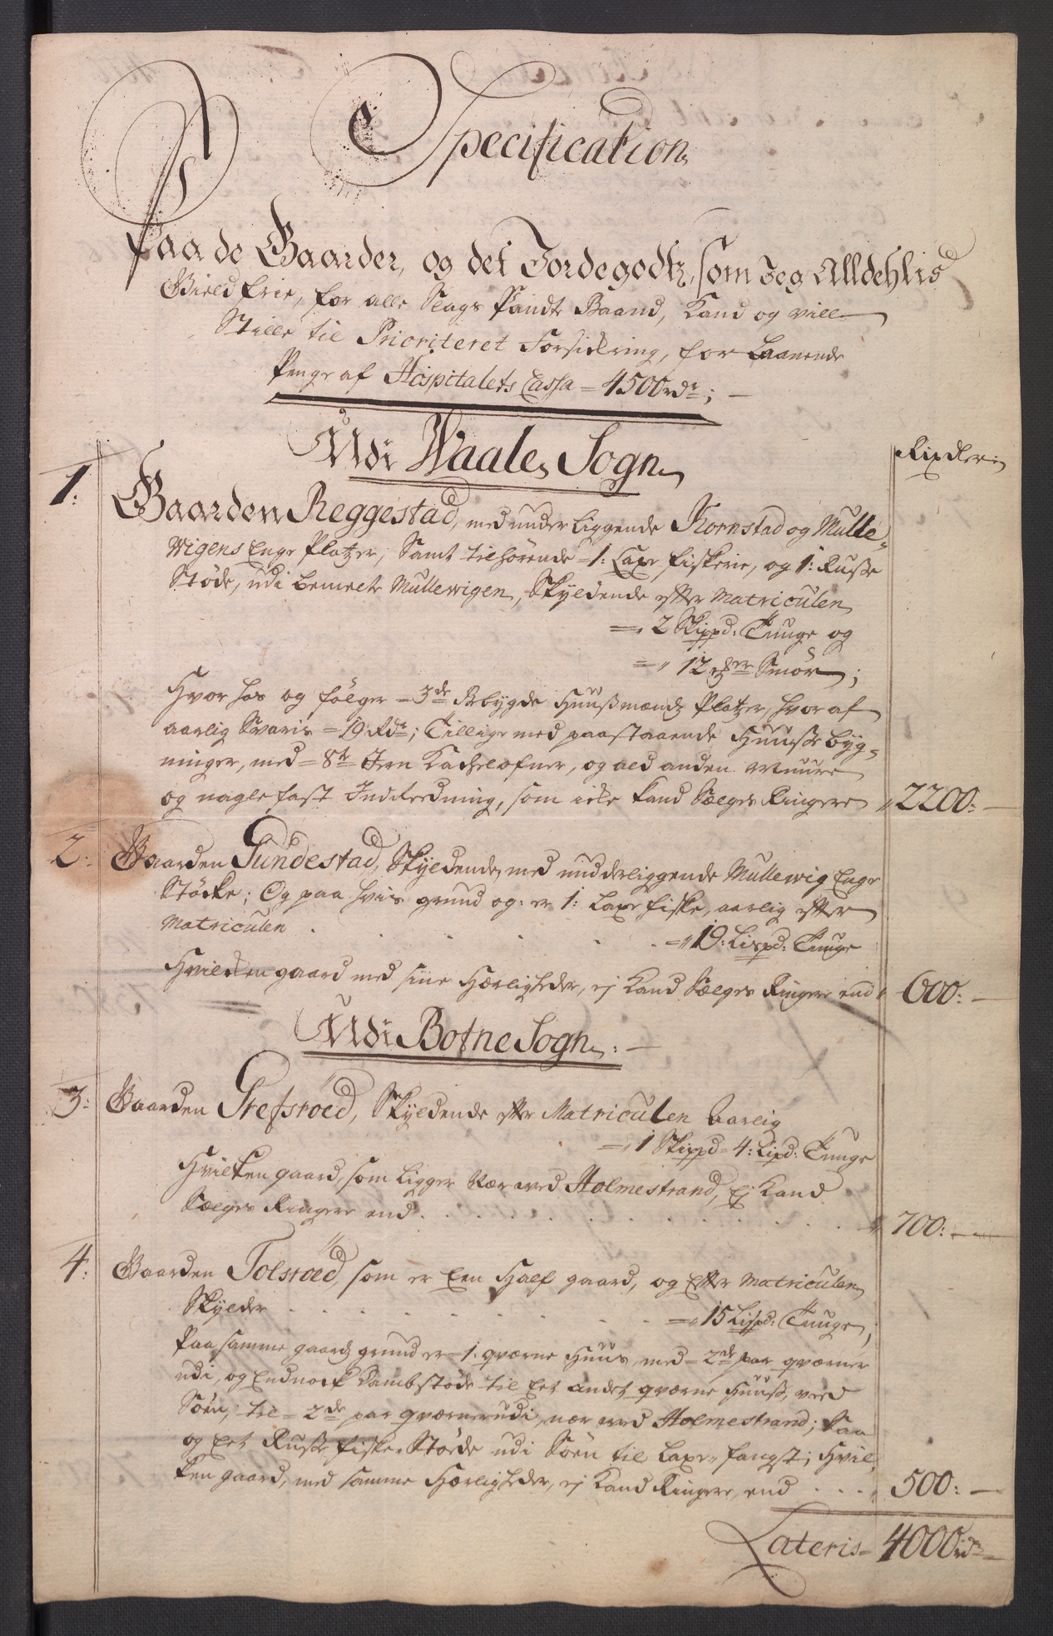 Specification
Paa de Gaarder, og det Jordegodtz, som Jeg Alldehlis
Gield frie, for alle Slags Pandte Baand, Kand og vill
Stille til Prioriteret Forsikring, for Laanende
Penge af Hospitalets Cassa = 4500 rdr;
Udi Waale Sogn
Rixdler
1: Gaarden Reggestad, med underliggende Kornstad og Mulle-
Wigens Enge Platzer, Samt tilhørende 1: Laxe fiskerie, og 1: Ruse
Støde, udi bemelte Mullewigen, Skyldende efter Matriculen
= 2 Skippd: Tunge og
= 12 mrk Smør;
Hvor hos og følger = 3de Bebygde Huusmænds Platzer, hvor af
aarlig Svaris = 19 Rdr; Tillige med paastaaende Huuse byg-
ninger, med = 8te Jern Kachelofner, og ald anden Muure
og naglefast Indreedning, som icke kand Sælges Ringere 2200:
2: Gaarden Gundestad, Skyldende, med underliggende Mullewig Enge
Støcke; Og paa hvis grund og er 1: Laxe fiske, aarlig efter
Matriculen . . . . . = 19: Lispd: Tunge
Hvilken gaard med sine Herligheder, ej Kand Sælges Ringere end 600:
Udi Botne Sogn:
3: Gaarden Grefsrøed, Skyldende efter Matriculen aarlig
= 1 Skippd = 4: Lipd: Tunge
Hvilken gaard, som ligger Nær ved Holmestrand, Ej Kand
Sælges Ringere end . . . . . . . . . . 700:
4: Gaarden Tolsrøed, som er Een Half gaard, og Efter Matriculen
Skylder . . . . . . = 15 Lispd: Tunge;
Paa samme gaards grund er = 1: qværne Huus, med = 2de par qværner
udi, og Endnock Dambstøde til Eet andet qværne Huus, ved
Søen, til = 2de par qværner udi, nær ved Holmestrand; Saa
og Eet Ruse fiske Støede udi Søen til Laxe fangst; Hvil-
ken gaard, med samme Herligheder, ej Kand Ringere, end . . . 500:
Lateris = 4000 rdr